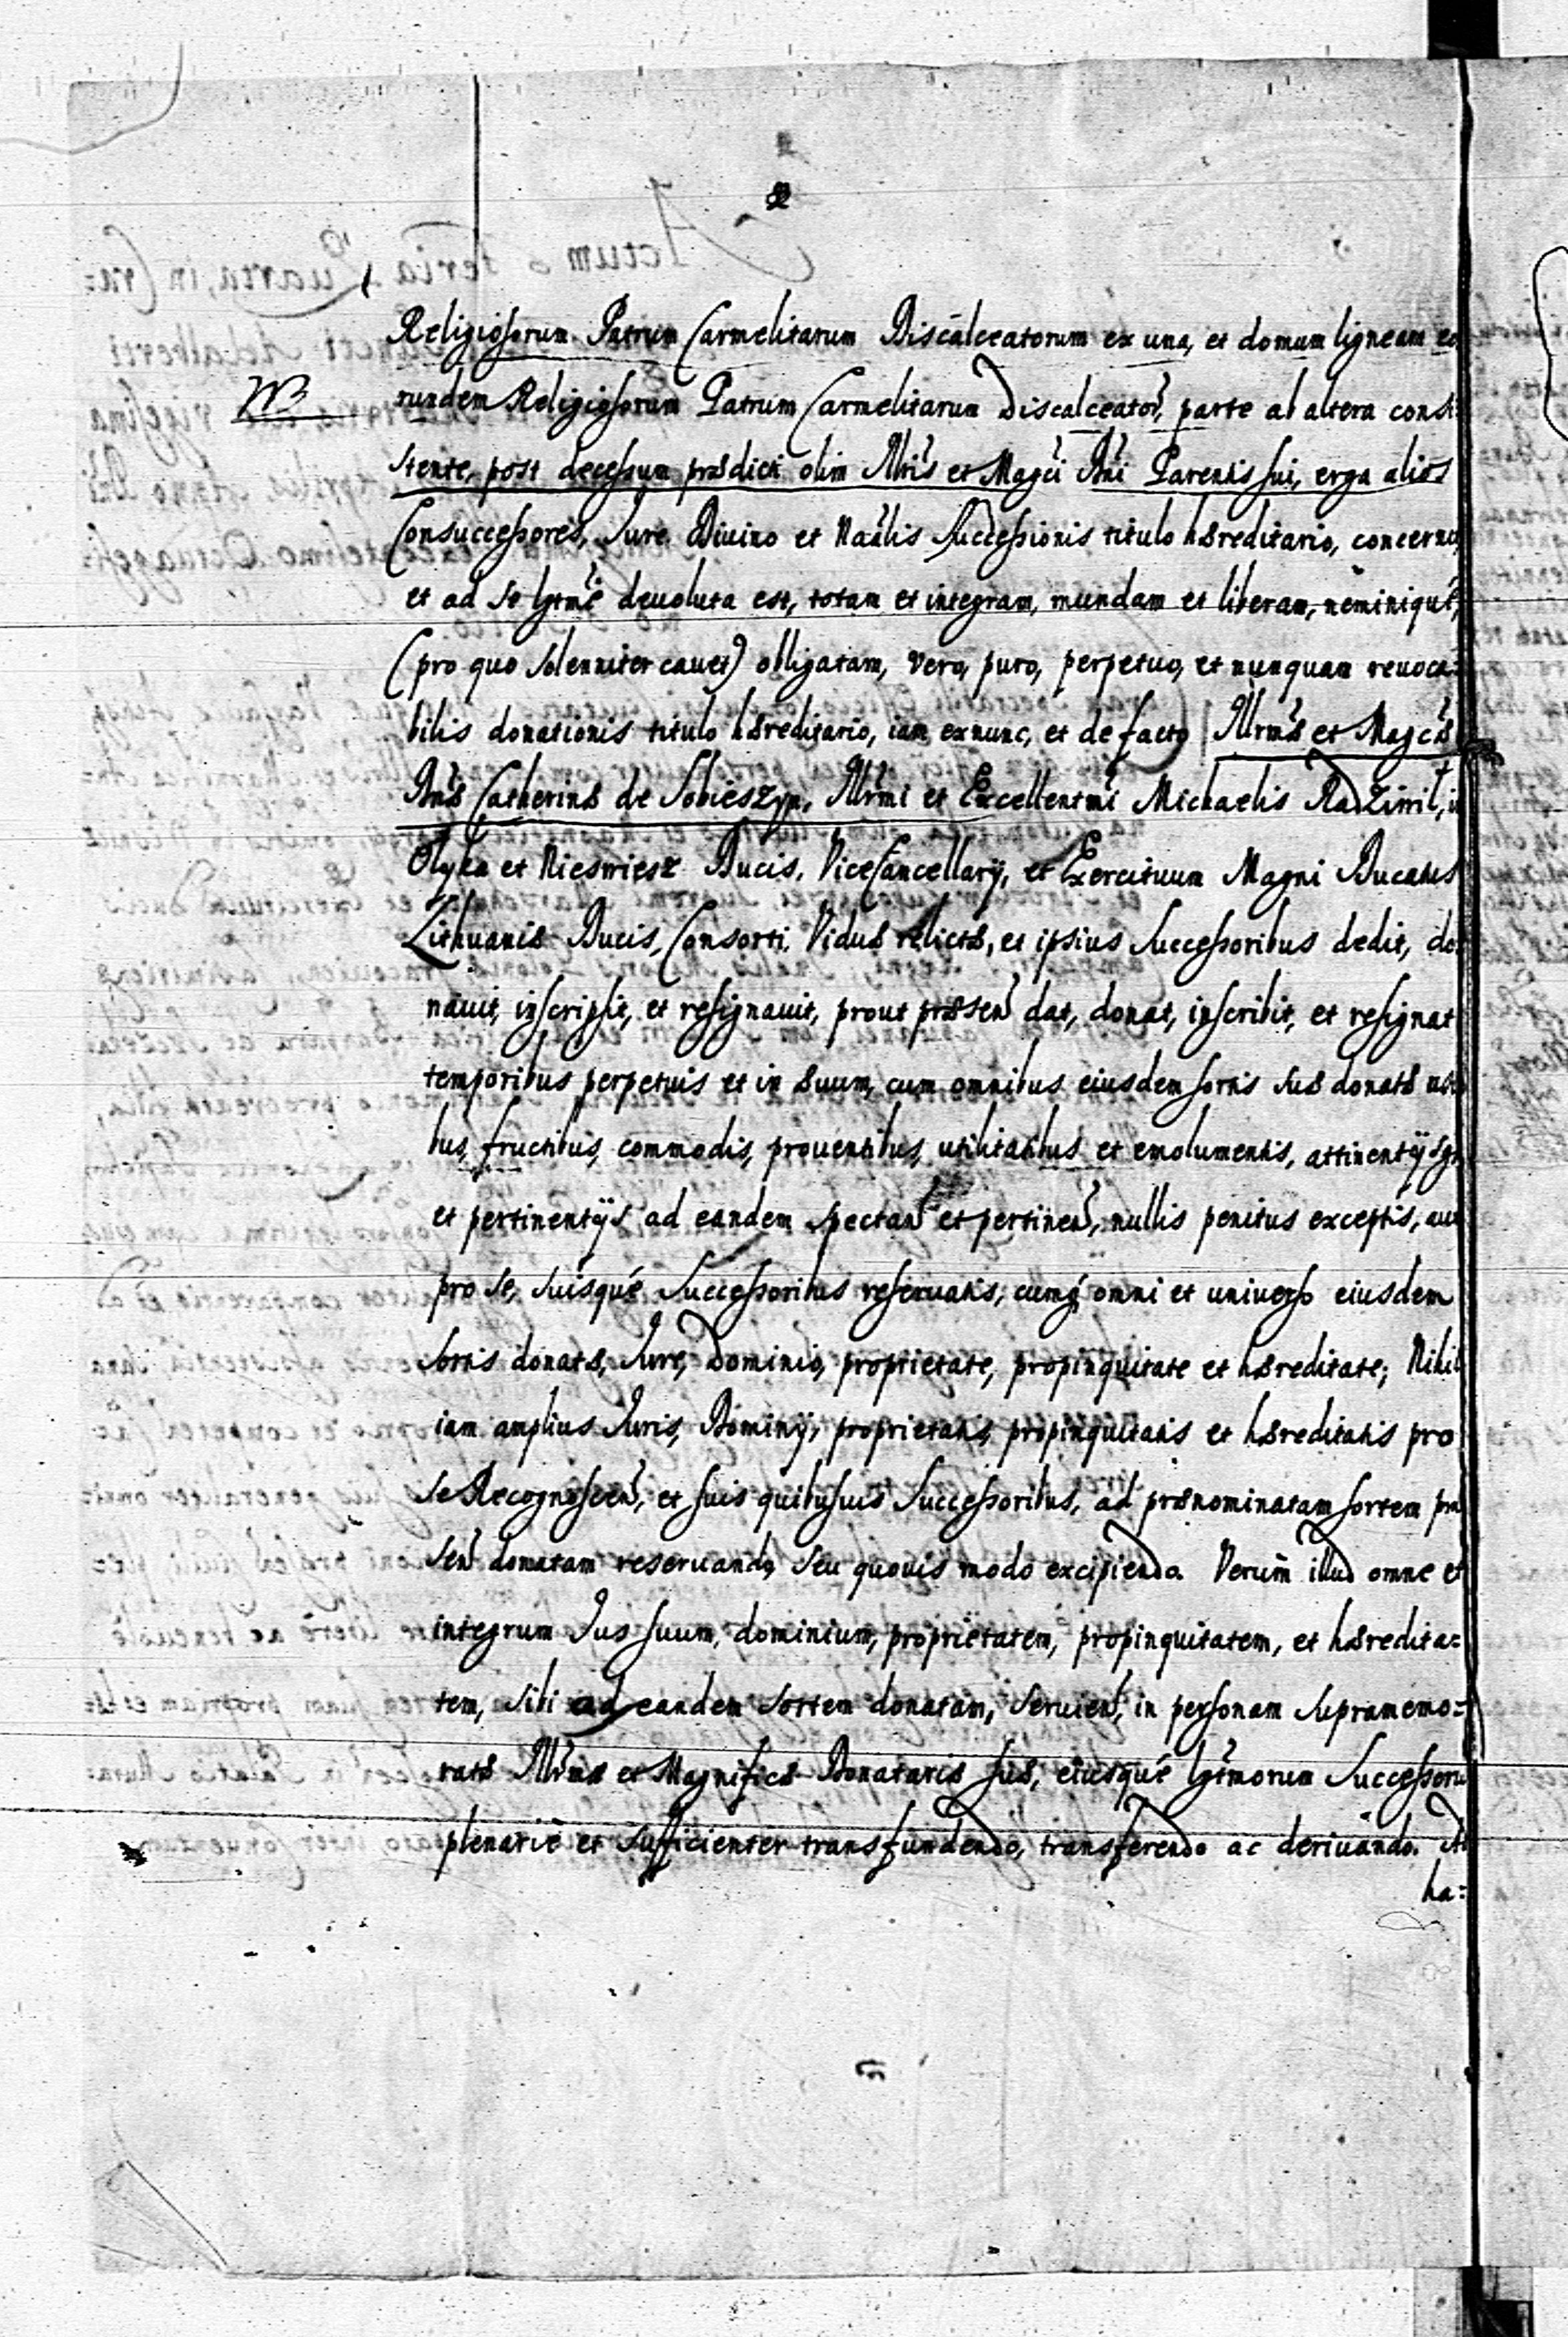 Religiosorum Patrum Carmelitarum Discalceatorum ex una, et domum ligneam eo
NB
rundem Religiosorum Patrum Carmelitarum Discalceator, parte ab altera consi
stente, post decessum prædicti olim Illris et Magci Dni Parentis sui, erga alios
Consuccessores, Jure Diuino et Naalis Successionis titulo hæreditario, concerne
et ad se lgtmè deuoluta est, totam et integram, mundam et liberam, neminiqué,
(pro quo solenniter cauet) obligatam, vero, puro, perpetuo, et nunquam reuoca:
bilis donationis titulo hæreditario, iam exnunc, et de facto Illrmæ et Magcæ
Dnæ Catherinæ de Sobieszyn, Illrmi et Excellentmi Michaelis Radziwił, i
Olyka et Nieswiesz Ducis, ViceCancellarij, et Exercituum Magni Ducatus
Lithuaniæ Ducis, Consorti, Viduæ relictæ, et ipsius Successoribus dedit, do
nauit, inscripsit, et resignauit, prout præsen dat, donat, inscribit, et resignat
temporibus perpetuis et in æuum, cum omnibus eiusdem sortis suæ donatæ usi
bus, fructibus, commodis, prouentibus, utilitatibus et emolumentis, attinentijsq,
et pertinentijs ad eandem spectan et pertinen, nullis penitus exceptis, aut
pro se, suisqué Successoribus reseruatis, cumq omni et universo eiusdem
sortis donatæ, Jure, Dominio, proprietate, propinquitate et hæreditate; Nihil
iam amplius Juris, Dominij, proprietatis, propinquitatis et hæreditatis pro
se Recognoscen, et suis quibusuis Successoribus, ad prænominatam sortem præ
sen donatam reseruando, seu quouis modo excipiendo. Verum illud omne et
integrum Jus suum, dominium, proprietatem, propinquitatem, et hæredita=
tem, sibi ad eandem sortem donatam, seruien, in personam supramemo=
ratæ Illrmæ et Magnificæ Donatariæ suæ, eiusqué lgtmorum Successoru
plenariè et sufficienter transfundendo, transferendo ac deriuando. Ad
ha=